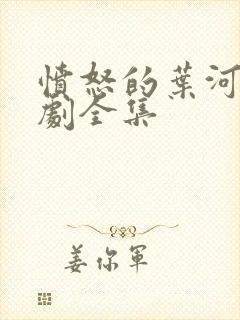 憤怒的葉河
劇全集
姜你軍